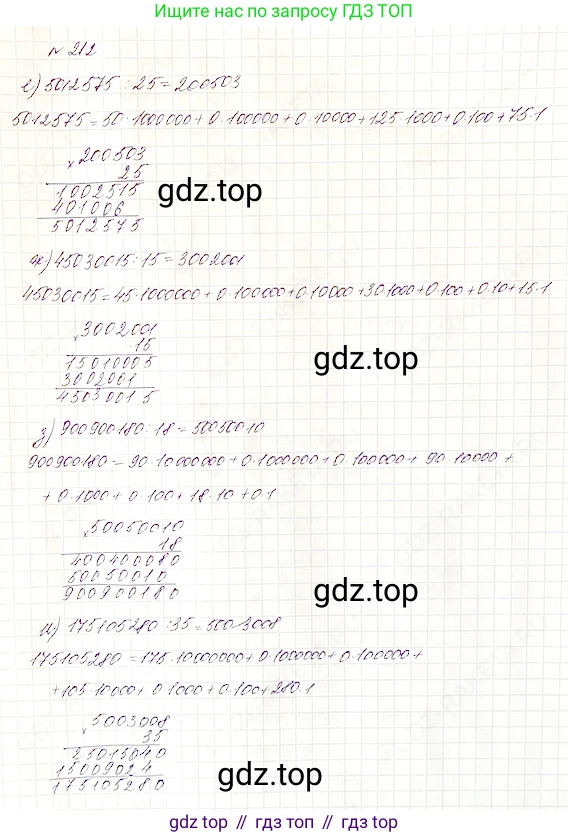 Ищите нас по запросу ГДЗ ТОП
№ 212
е) 5012575 : 25 = 200503
5012575 = 50·100000 + 0·100000 + 0·10000 + 125·1000 + 0·100 + 75·1
× 200503
25
1002515
401006
5012575
gdz.top
ж) 45030015 : 15 = 3002001
45030015 = 45·1000000 + 0·100000 + 0·10000 + 30·1000 + 0·100 + 0·10 + 15·1
× 3002001
15
15010005
3002001
45030015
gdz.top
з) 900900180 : 18 = 50050010
900900180 = 90·10000000 + 0·1000000 + 0·100000 + 90·10000 +
+ 0·1000 + 0·100 + 18·10 + 0·1
× 50050010
18
400400080
50050010
900900180
gdz.top
и) 175105280 : 35 = 5003008
175105280 = 175·10000000 + 0·1000000 + 0·100000 +
+ 105·10000 + 0·1000 + 0·100 + 280·1
× 5003008
35
25015040
15009024
175105280
gdz.top
gdz top // гдз топ // гдз.top